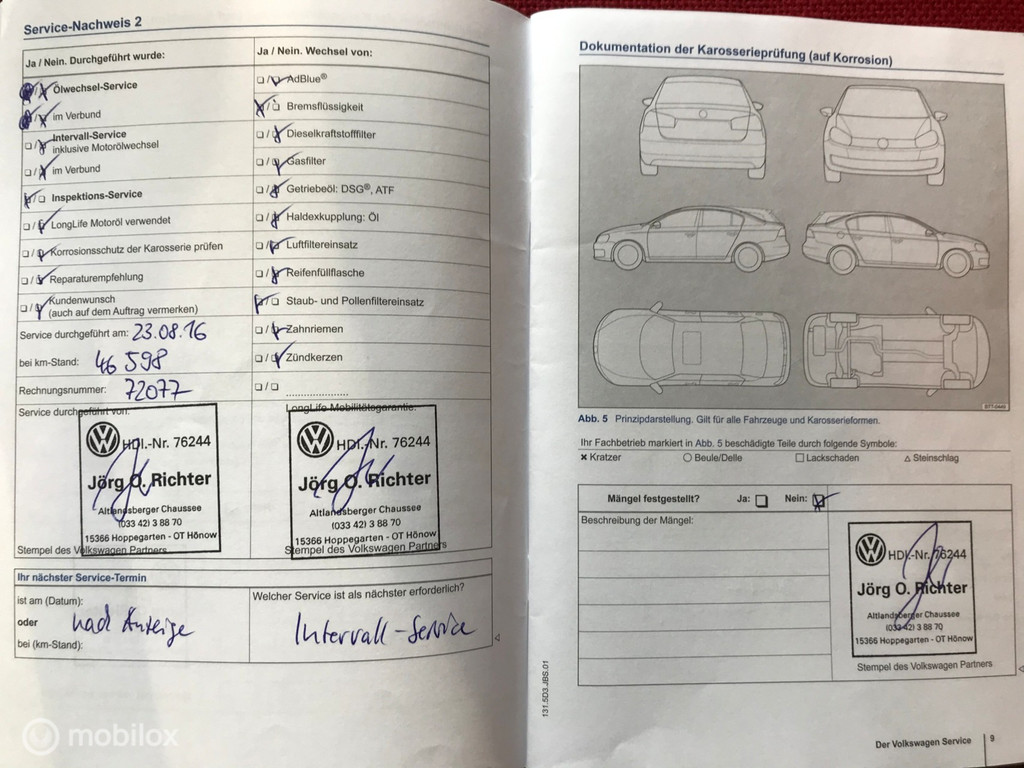 Service-Nachweis 2
Ja / Nein. Durchgeführt wurde:
Ölwechsel-Service
im Verbund
Intervall-Service
inklusive Motorölwechsel
im Verbund
Inspektions-Service
LongLife Motoröl verwendet
Korrosionsschutz der Karosserie prüfen
Reparaturempfehlung
Kundenwunsch
(auch auf dem Auftrag vermerken)
Service durchgeführt am: 23.08.16
bei km-Stand: 46 598
Rechnungsnummer: 72077
Ja / Nein. Wechsel von:
AdBlue®
Bremsflüssigkeit
Dieselkraftstofffilter
Gasfilter
Getriebeöl: DSG®, ATF
Haldexkupplung: Öl
Luftfiltereinsatz
Reifenfüllflasche
Staub- und Pollenfiltereinsatz
Zahnriemen
Zündkerzen
Service durchgeführt von:
HDl.-Nr. 76244
Jörg O. Richter
Altlandsberger Chaussee
(033 42) 3 88 70
15366 Hoppegarten - OT Hönow
Stempel des Volkswagen Partners
LongLife Mobilitätsgarantie:
HDl.-Nr. 76244
Jörg O. Richter
Altlandsberger Chaussee
(033 42) 3 88 70
15366 Hoppegarten - OT Hönow
Stempel des Volkswagen Partners
Ihr nächster Service-Termin
ist am (Datum):
oder nach Anzeige
bei (km-Stand):
Welcher Service ist als nächster erforderlich?
Intervall-Service
mobilox
Dokumentation der Karosserieprüfung (auf Korrosion)
Abb. 5 Prinzipdarstellung. Gilt für alle Fahrzeuge und Karosserieformen.
Ihr Fachbetrieb markiert in Abb. 5 beschädigte Teile durch folgende Symbole:
Kratzer Beule/Delle Lackschaden Steinschlag
Mängel festgestellt? Ja: Nein:
Beschreibung der Mängel:
HDl.-Nr. 76244
Jörg O. Richter
Altlandsberger Chaussee
(033 42) 3 88 70
15366 Hoppegarten - OT Hönow
Stempel des Volkswagen Partners
131.5D3.JBS.01
Der Volkswagen Service 9